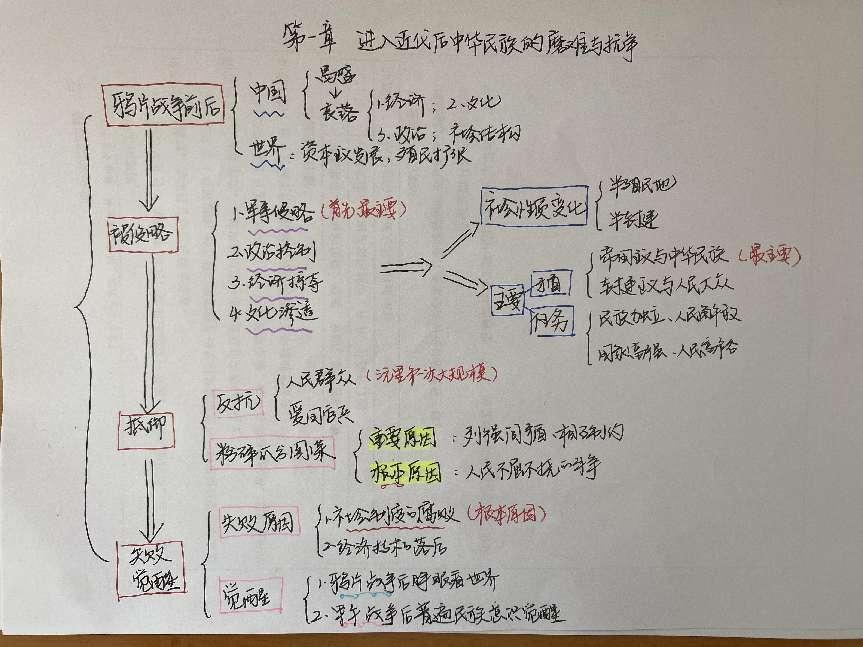 第一章 进入近代后中华民族的磨难与抗争
鸦片战争前后
中国
禺盛
衰落
1.经济; 2.文化
3.政治; 社会结构
世界:资本主义发展,殖民扩张
被侵略
1.军事侵略(首先最主要)
2.政治控制
3.经济掠夺
4.文化渗透
社会性质变化
半殖民地
半封建
主要
矛盾
帝国主义与中华民族(最主要)
封建主义与人民大众
任务
民族独立、人民解放
国家富强、人民富裕
抵御
反抗
人民群众(三元里第一次大规模)
爱国官兵
粉碎瓜分图谋
重要原因:列强间矛盾、相互制约
根本原因:人民不屈不挠的斗争
失败
觉醒
失败原因
1.社会制度的腐败(根本原因)
2.经济技术的落后
觉醒
1.鸦片战争后睁眼看世界
2.甲午战争后普遍民族意识觉醒